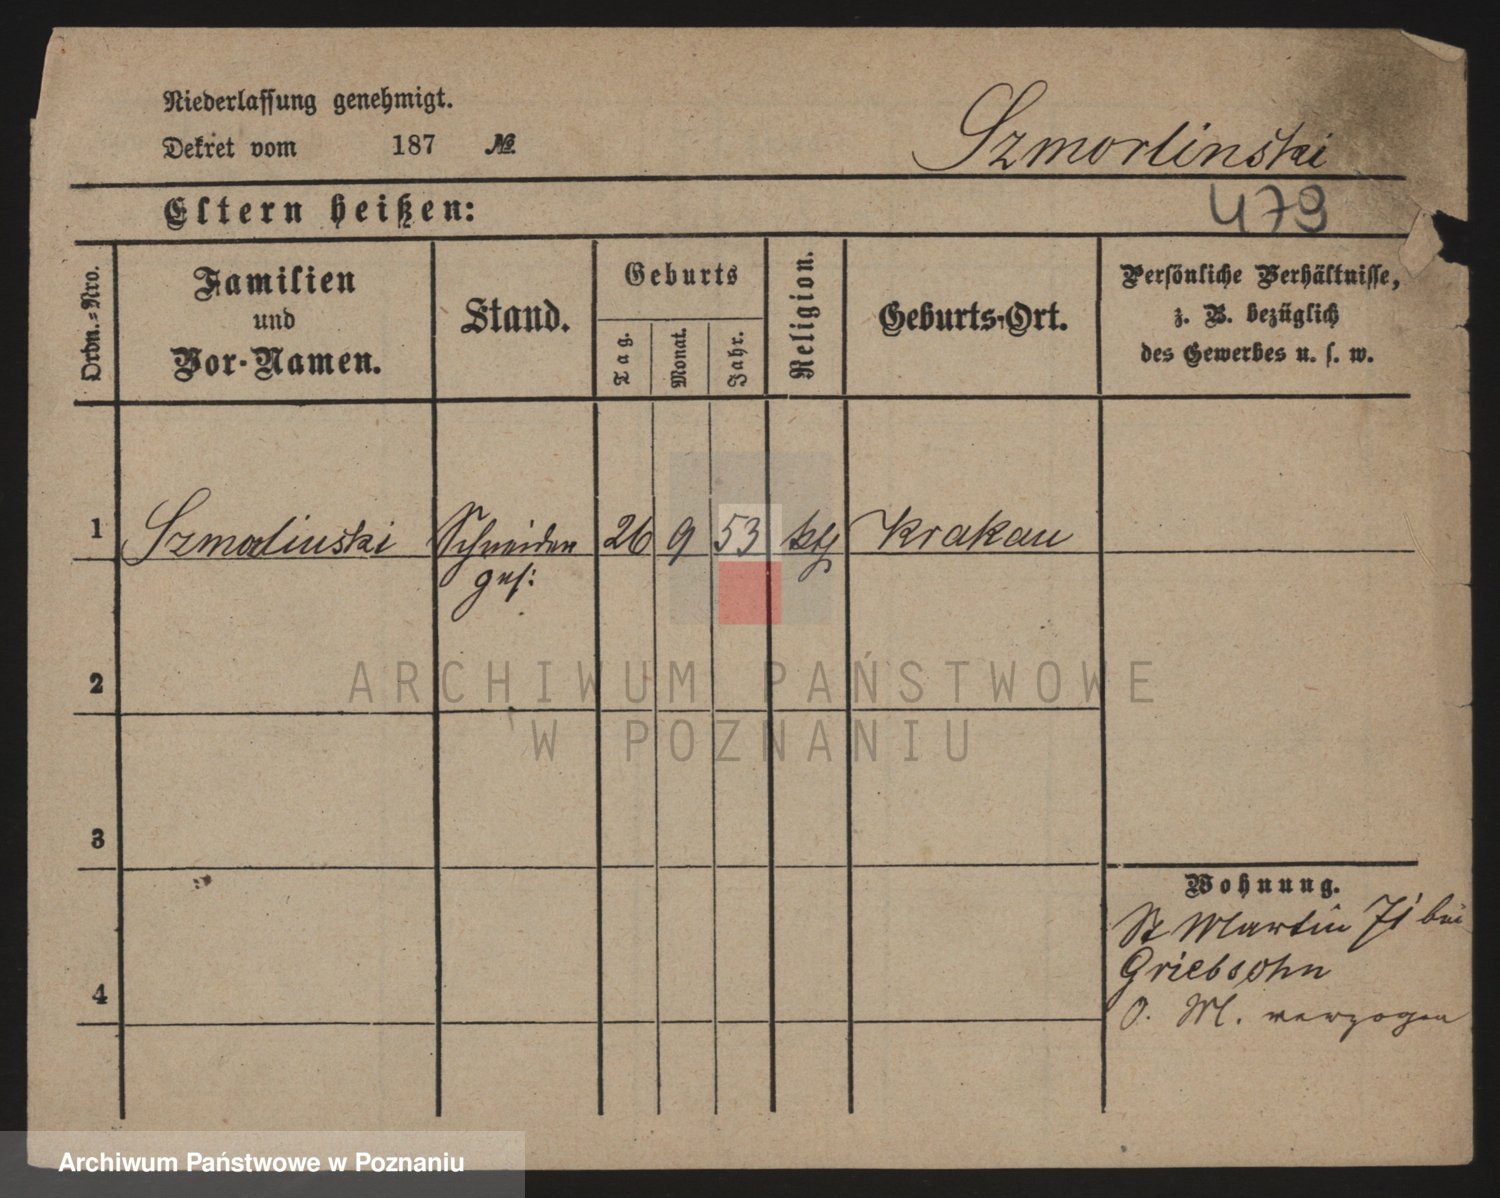 Niederlassung genehmigt.
Dekret vom 187 №
Szmorlinski
479
Eltern heißen:
Ordn.=Nro.
Familien
und
Vor-Namen.
Stand.
Geburts
Tag.
Monat.
Jahr.
Religion.
Geburts-Ort.
Persönliche Verhältnisse,
z. B. bezüglich
des Gewerbes u. s. w.
1 Szmorlinski Schneider 26 9 53 kth Krakau
ges:
2
3
4
Wohnung.
St Martin 71 bei
Griebsohn
O. M. verzogen
ARCHIWUM PAŃSTWOWE
W POZNANIU
Archiwum Państwowe w Poznaniu